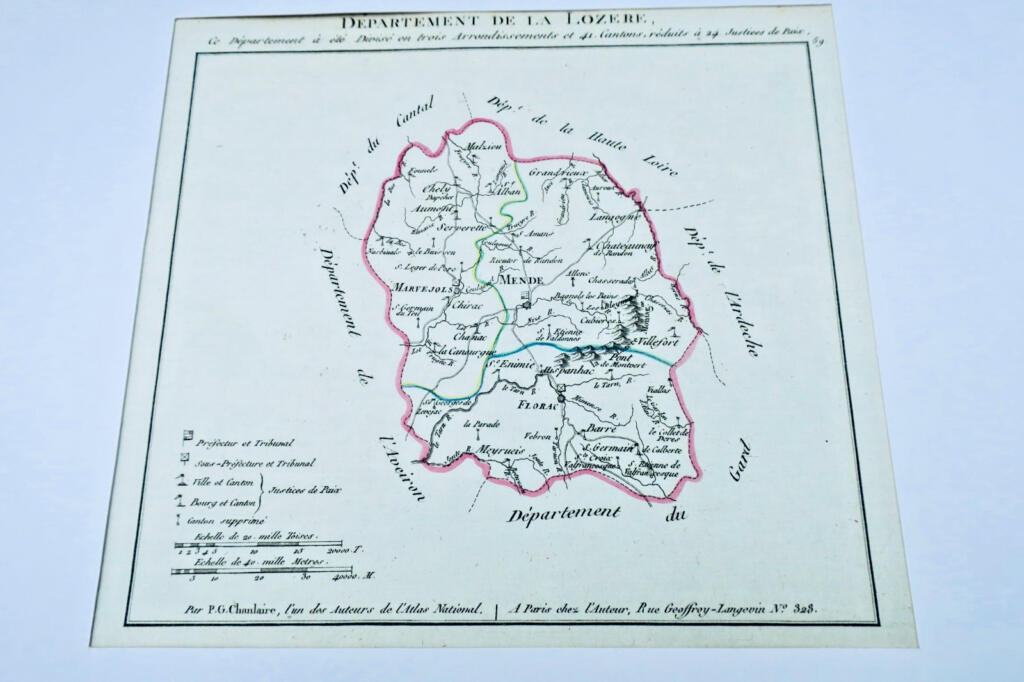 DÉPARTEMENT DE LA LOZERE,
Ce Département à été Divisé en trois Arrondissements et 41. Cantons, réduits à 24 Justices de Paix.
59
Dép.t du Cantal
Dép.t de la Haute Loire
Dép.t de l'Ardeche
Département du Gard
Département de l'Aveiron
Malzieu
Fournels
Grandrieux
Chely
St Alban
Auroux
Aumont
Langogne
Serverette
Truyere R.
St Amans
Nasbinals
le Buisson
Chateauneuf
de Randon
Rieutor de Randon
St Leger de Peyre
Allenc
Chasserades
MENDE
MARVEJOLS
Bagnols les Bains
Chirac
St Germain
du Teil
Cubieres
Chanac
St Etienne
de Valdonnes
Villefort
la Canourgue
Lot R.
Ste Enimie
Pont
de Montvert
Ispanhac
le Tarn R.
le Tarn R.
FLORAC
Vialas
St Georges de
le Tarn R.
la Parade
Vebron
Barre
le Collet de
Deres
St Germain
de Calberte
Meyrueis
la Croix
Valfrancesque
St Etienne de
Valfrancesque
Préfectur et Tribunal
Sous-Préfecture et Tribunal
Ville et Canton
Bourg et Canton
Justices de Paix
Canton supprimé
Echelle de 20. mille Toises.
1 2 3 4 5 10 15 20000. T.
Echelle de 40. mille Metres.
5 10 20 30 40000. M.
Par P.G. Chanlaire, l'un des Auteurs de l'Atlas National.
A Paris chez l'Auteur, Rue Geoffroy-Langevin N.o 328.